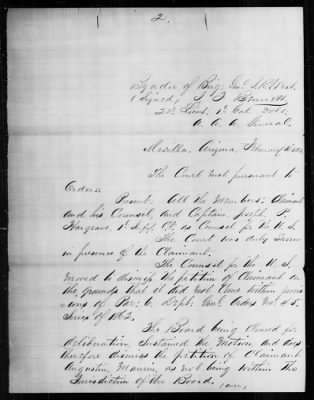 2.
By order of Brig. Genl. J. R. West.
(Signed) J. F. Bennett.
2d. Lieut. 1st Cal. Vols.
A. A. A. General.
Mesilla, Arizona, February 16 1863
The Court met pursuant to
Orders:
Present. All the Members: Claimant
and his Counsel, and Captain Joseph P.
Hargrave, 1st Infy. C.V. as Counsel for the U. S.
The Court was duly Sworn
in presence of the Claimant.
The Counsel for the U. S.
moved to dismiss the petition of Claimant on
the grounds that it did not come within provi-
sions of Par: 6, Dept. Genl. Orders No. 45,
Series of 1862.
The Board being cleared for
deliberation, Sustained the Motion, and does
therefore dismiss the petition of Claimant
Augustin Maurin, as not being within the
Jurisdiction of the Board.
(over)